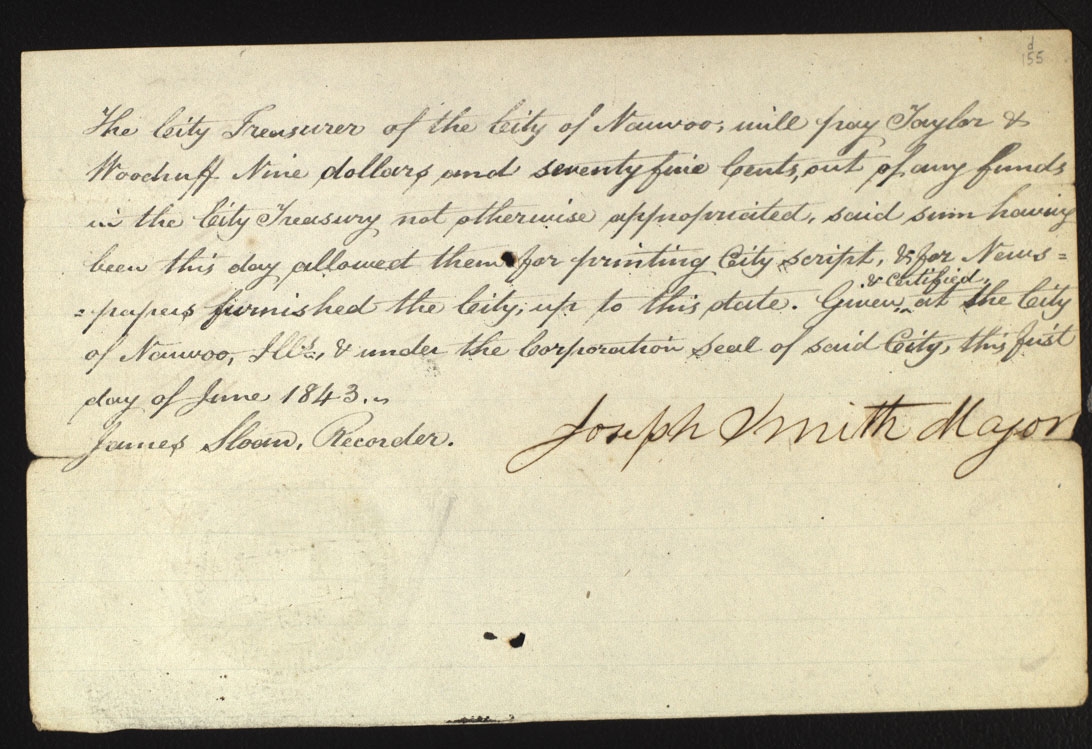 d
155
The City Treasurer of the City of Nauvoo, will pay Taylor &
Woodruff Nine dollars and seventy five Cents, out of any funds
in the City Treasury not otherwise appropriated, said sum having
been this day allowed them for printing City script, & for News=
& certified,
=papers furnished the City, up to this date. Given ^ at the City
of Nauvoo, Ills., & under the Corporation seal of said City, this first
day of June 1843.
James Sloan, Recorder.
Joseph Smith Mayor